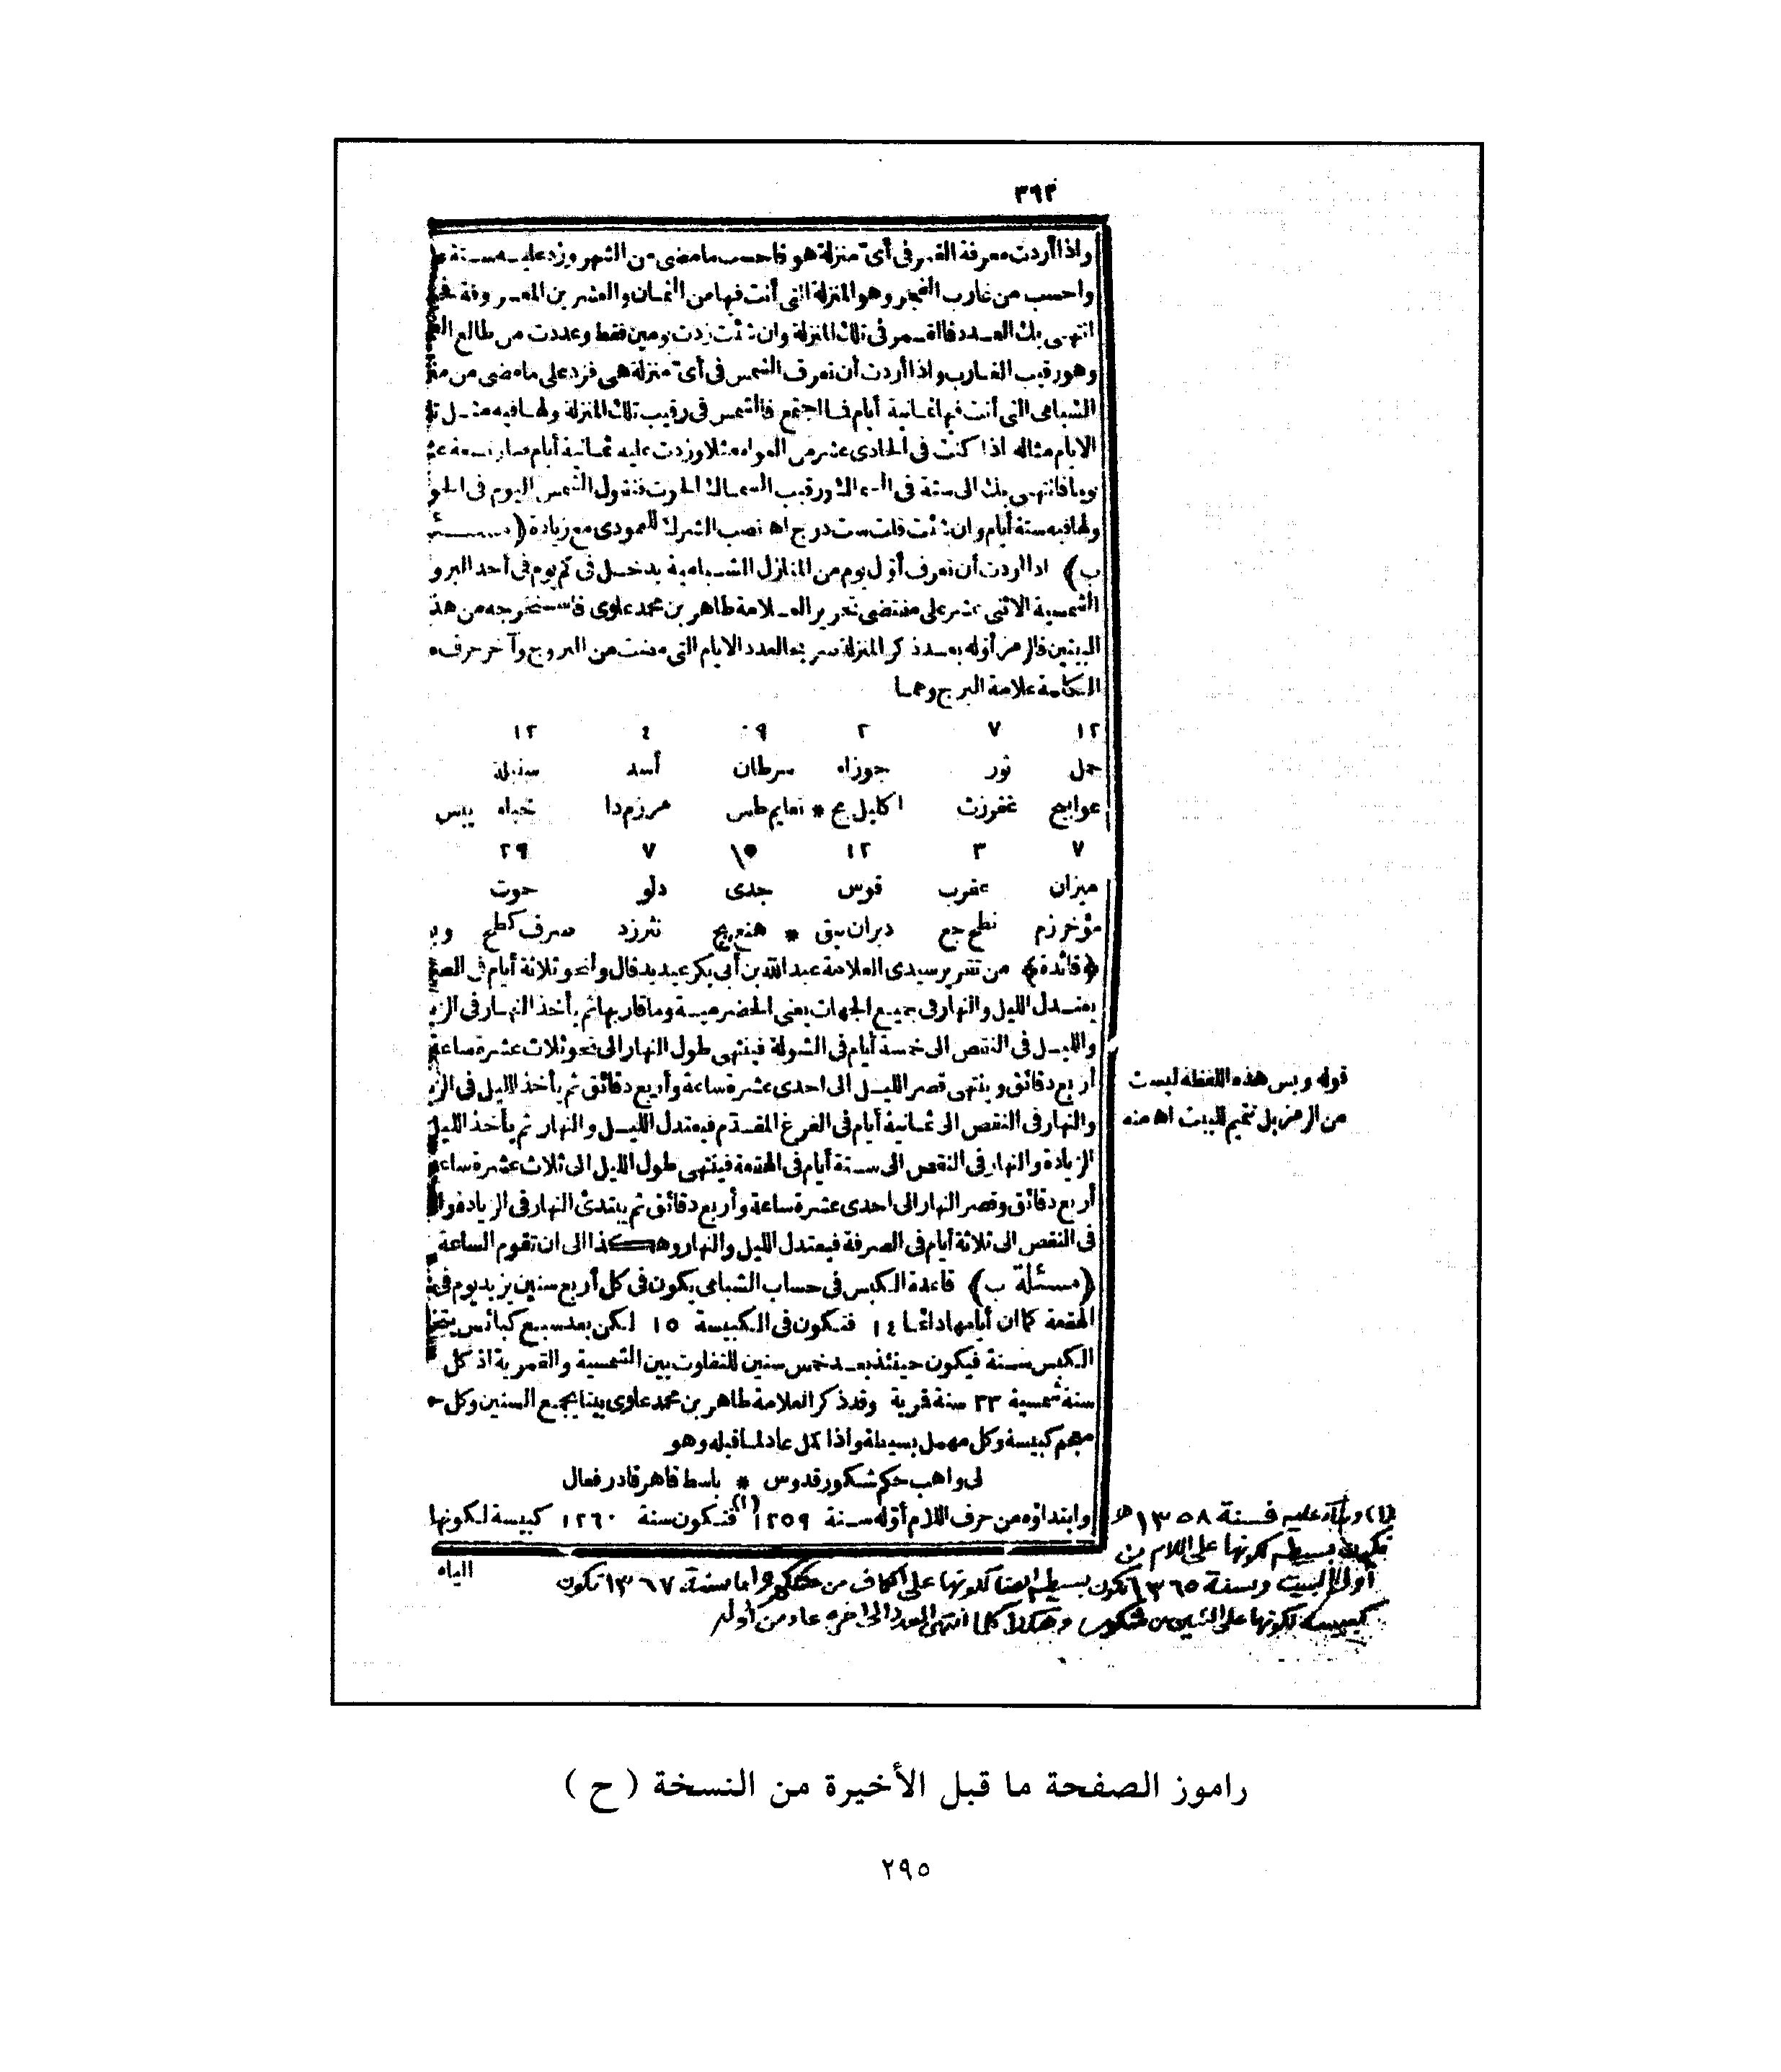 ٣٩٣
واذا أردت معرفة القمر فى أى منزلة هو فاحسب ما مضى من الشهر وزد عليه ستة
واحسب من غارب الفجر وهو المنزلة التى أنت فيها من الثمان والعشرين المعروفة
انتهى بك العدد فالقمر فى تلك المنزلة وان شئت زدت يومين فقط وعددت من طالع
وهو رقيب الغارب واذا أردت أن تعرف الشمس فى أى منزلة هى فزد على ما مضى من
الشبامى التى أنت فيها ثمانية أيام فما اجتمع فالشمس فى رقيب تلك المنزلة ولها فيه مثل
الايام مثاله اذا كنت فى الحادى عشر من العواء مثلا وزدت عليه ثمانية أيام صار تسعة
يوما فانتهى بك الى ستة فى السماك ورقيب السماك الحوت فتقول الشمس اليوم فى
ولها فيه ستة أيام وان شئت قلت ست درج اه نصب الشرك للعمودى مع زيادة (مسئـ
ب) اذا أردت أن تعرف أول يوم من المنازل الشبامية يدخل فى كم يوم فى أحد
الشمسية الاثنى عشر على مقتضى تحرير العلامة طاهر بن محمد علوى فاستخرجه من
البيتين فالرمز أوله بعد ذكر المنزلة تعريف العدد الايام التى مضت من البروج وآخر حرف
الكلمة علامة البرج وهما
١٢ ٧ ٢ ٩ ٤ ١٢
حمل ثور جوزاء سرطان أسد سنبلة
عوابيح غفرزث اكليل بج * نعايم طس مرزم دا خباه يبس
٧ ٣ ١٢ ١٥ ٧ ٢٩
ميزان عقرب قوس جدى دلو حوت
مؤخر زم نطح جع دبران يبق * هنع يج نثر زد صرف كطح
(فائدة) من تقرير سيدى العلامة عبد الله بن أبى بكر عيديد قال وأنحو ثلاثة أيام فى
يعتدل الليل والنهار فى جميع الجهات يعنى الحضرمية وما قاربها ثم يأخذ النهار فى
والليل فى النقص الى خمسة أيام فى الشولة فينتهى طول النهار الى نحو ثلاث عشرة ساعة
أربع دقائق وينتهى قصر الليل الى احدى عشرة ساعة وأربع دقائق ثم يأخذ الليل فى
والنهار فى النقص الى ثمانية أيام فى الفرغ المقدم فيعتدل الليل والنهار ثم يأخذ الليل
الزيادة والنهار فى النقص الى ستة أيام فى الهقعة فينتهى طول الليل الى ثلاث عشرة
أربع دقائق وقصر النهار الى احدى عشرة ساعة وأربع دقائق ثم يبتدئ النهار فى الزيادة
فى النقص الى ثلاثة أيام فى الصرفة فيعتدل الليل والنهار وهكذا الى ان تقوم الساعة
(مسئلة ب) قاعدة الكبس فى حساب الشبامى يكون فى كل أربع سنين يزيد يوم فى
الهقعة كما ان أيامها دائما ١٤ فتكون فى الكبيسة ١٥ لكن بعد سبع كبائس
الكبس سنة فيكون حينئذ بعد خمس سنين للتفاوت بين الشمسية والقمرية اذ كل
سنة شمسية ٣٣ سنة قمرية وقد ذكر العلامة طاهر بن محمد علوى بيتا يجمع السنين وكل
معجم كبيسة وكل مهمل بسيطة واذا كمل عاد لما قبله وهو
لى واهب حكم شكور قدوس * باسط قاهر قادر فعال
وابتداؤه من حرف اللام أوله سنة ١٢٥٩ (١) فتكون سنة ١٢٦٠ كبيسة لكونها
الياه
قوله وبس هذه اللفظة ليست
من الرمز بل تتميم للبيت اه منه
(١) وبناء عليه فسنة ١٣٥٨ هـ
تكون بسيطة لكونها على اللام من
أول البيت وسنة ١٣٦٥ تكون بسيطة ايضا لكونها على الكاف من وأما سنة ١٣٦٧ تكون
كبيسة لكونها على الشين من شكور وهكذا كلما انتهى العدد الى اخره عاد من أوله
راموز الصفحة ما قبل الأخيرة من النسخة ( ح )
٢٩٥